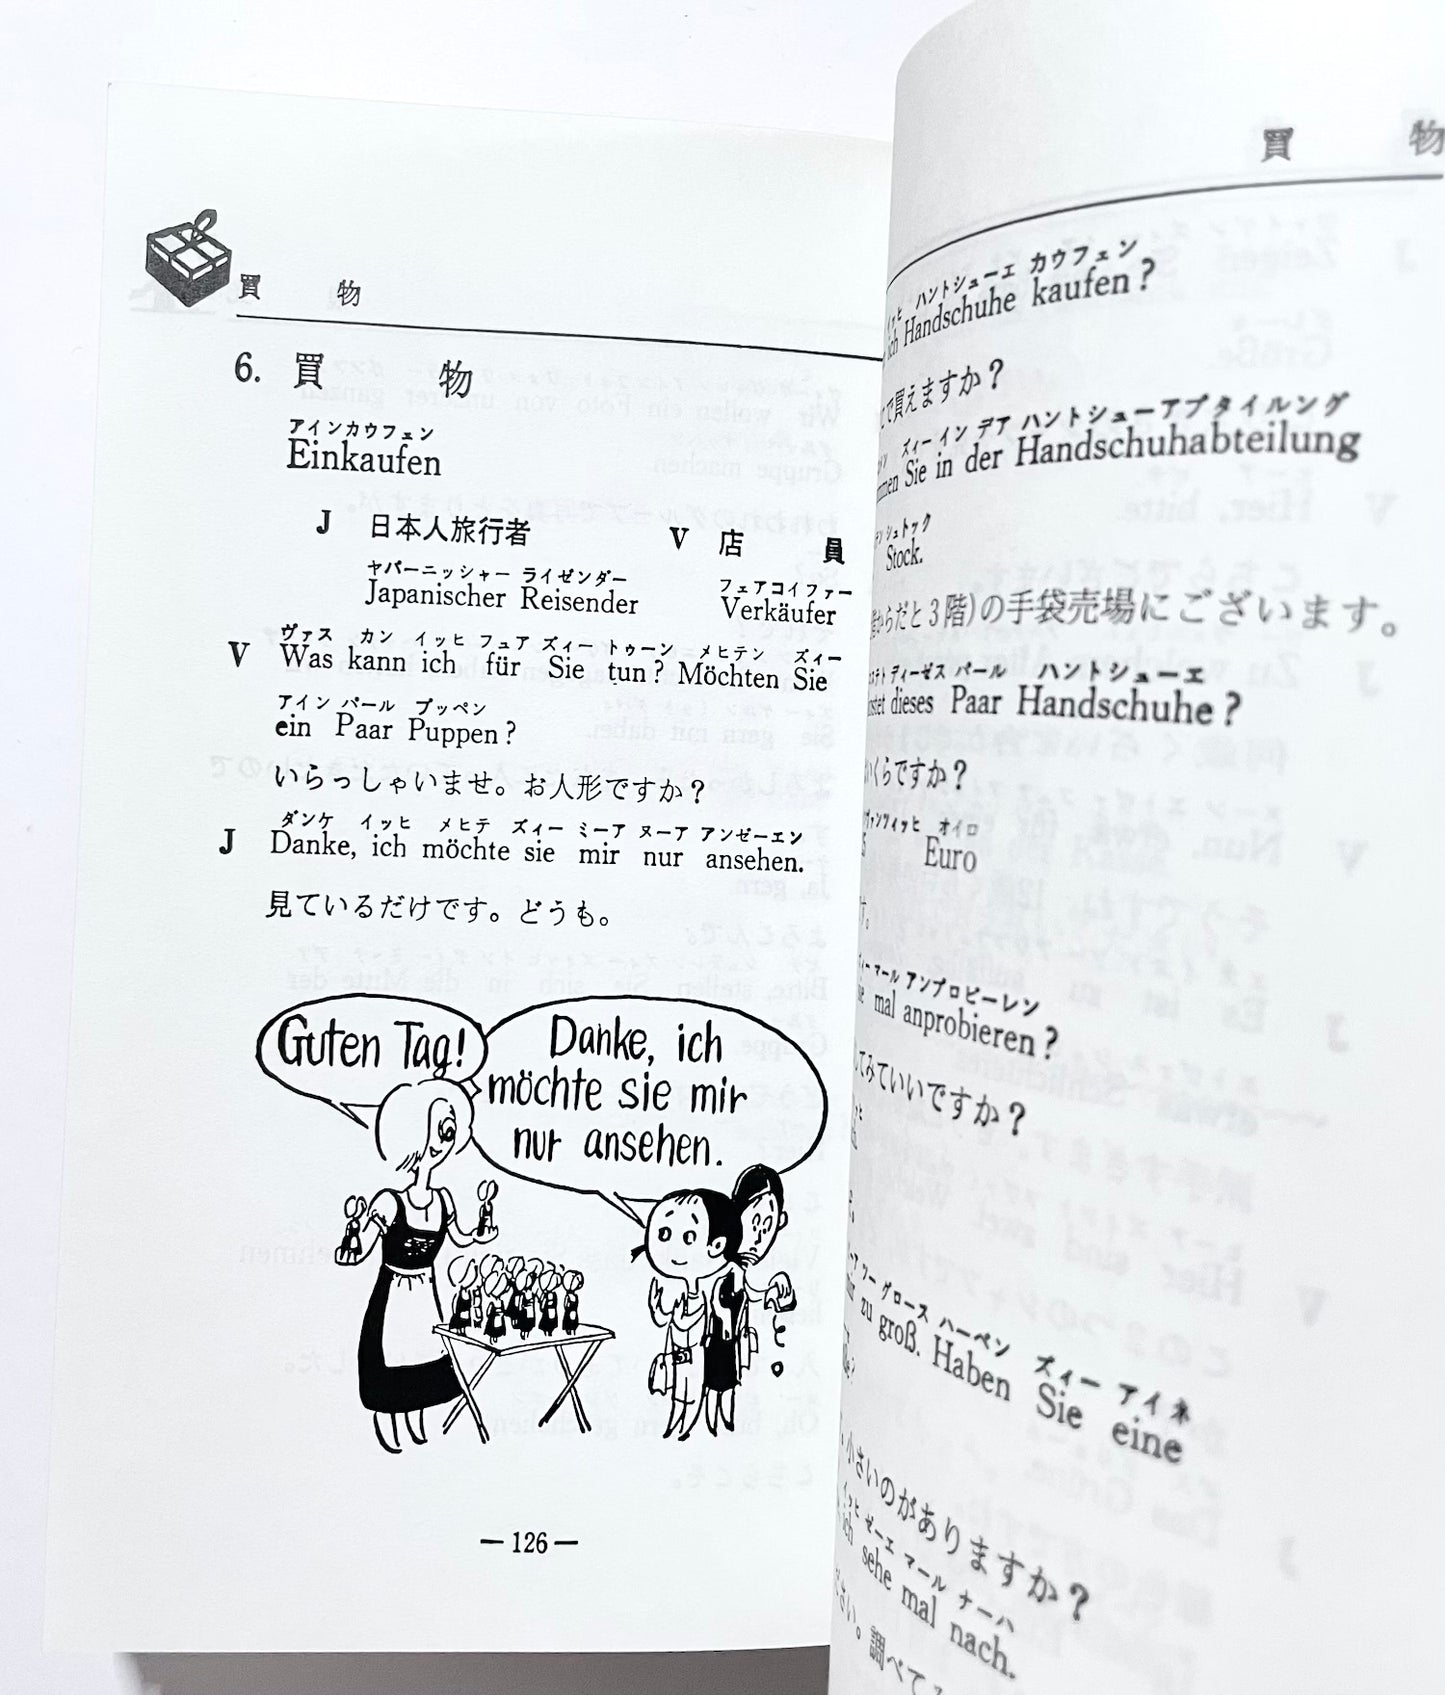 買 物
6. 買 物
アインカウフェン
Einkaufen
J 日本人旅行者 V 店 員
ヤパーニッシャー ライゼンダー フェアコイファー
Japanischer Reisender Verkäufer
ヴァス カン イッヒ フュア ズィー トゥーン メヒテン ズィー
V Was kann ich für Sie tun? Möchten Sie
アイン パール プッペン
ein Paar Puppen?
いらっしゃいませ。お人形ですか？
ダンケ イッヒ メヒテ ズィー ミーア ヌーア アンゼーエン
J Danke, ich möchte sie mir nur ansehen.
見ているだけです。どうも。
Guten Tag!
Danke, ich
möchte sie mir
nur ansehen.
と。
—126—
買 物
イッヒ ハントシューエ カウフェン
ich Handschuhe kaufen?
で買えますか？
ズィー イン デア ハントシューアプタイルング
Sie in der Handschuhabteilung
シュトック
Stock.
からだと3階)の手袋売場にございます。
ディーゼス パール ハントシューエ
dieses Paar Handschuhe?
いくらですか？
オイロ
Euro
マール アンプロビーレン
mal anprobieren?
てみていいですか？
ツー グロース ハーベン ズィー アイネ
zu groß. Haben Sie eine
小さいのがありますか？
イッヒ ゼーエ マール ナーハ
ich sehe mal nach.
さい。調べて